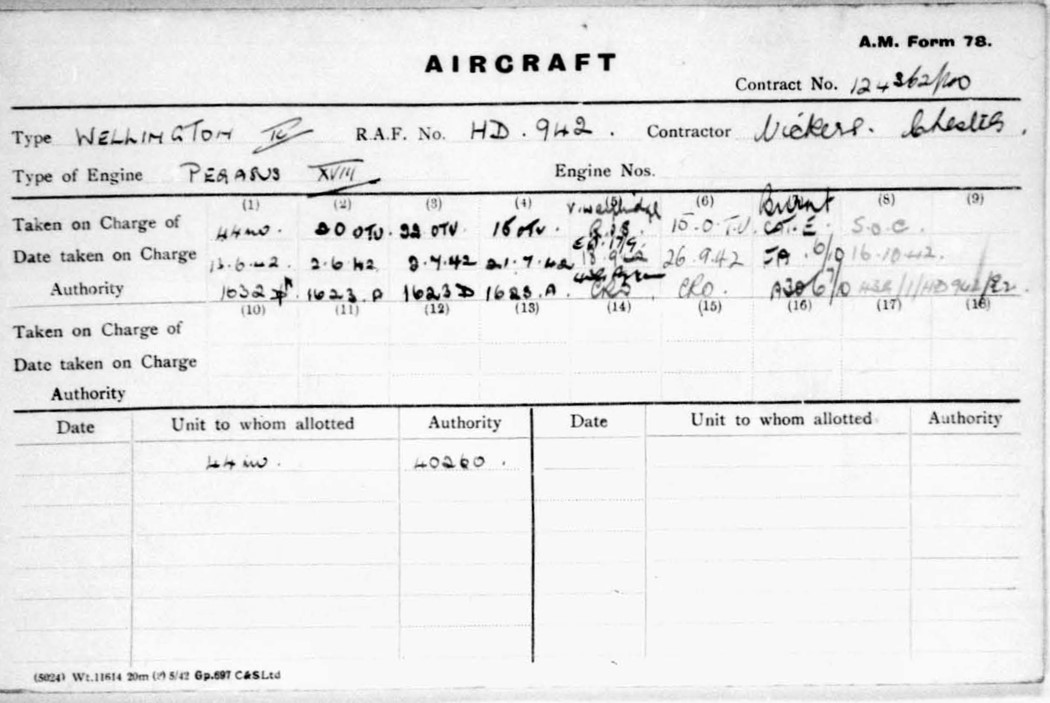 A.M. Form 78.
AIRCRAFT
Contract No. 124362/40
Type WELLINGTON R.A.F. No. HD.942. Contractor Vickers. Chester.
Type of Engine PEGASUS XVIII Engine Nos.
(1) (2) (3) (4) (5) (6) (7) (8) (9)
Taken on Charge of 44 MU. 20 OTU. 22 OTU 15 OTU. 15.O.T.U. Burnt CAT.E. S.O.C.
Date taken on Charge 2.6.42 2.7.42 21.7.42 18.9.42 26.9.42 FA. 6/10 16.10.42.
Authority 1632 1623.A 1623 D 1623.A. CRO CRO. 6/10
(10) (11) (12) (13) (14) (15) (16) (17) (18)
Taken on Charge of
Date taken on Charge
Authority
Date Unit to whom allotted Authority Date Unit to whom allotted Authority
44 MU. 40260.
(5024) Wt.11614 20m 5/42 Gp.697 C&S Ltd